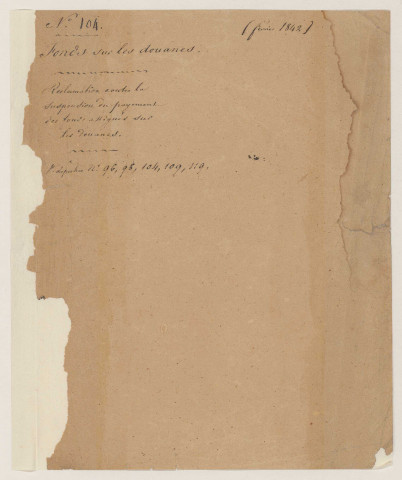 N.º 104.
(février 1842)
Fonds sur les douanes.
Réclamation contre la
suspension du payement
des bons assignés sur
les douanes.
Dépêches Nos 96, 98, 104, 109, 119.